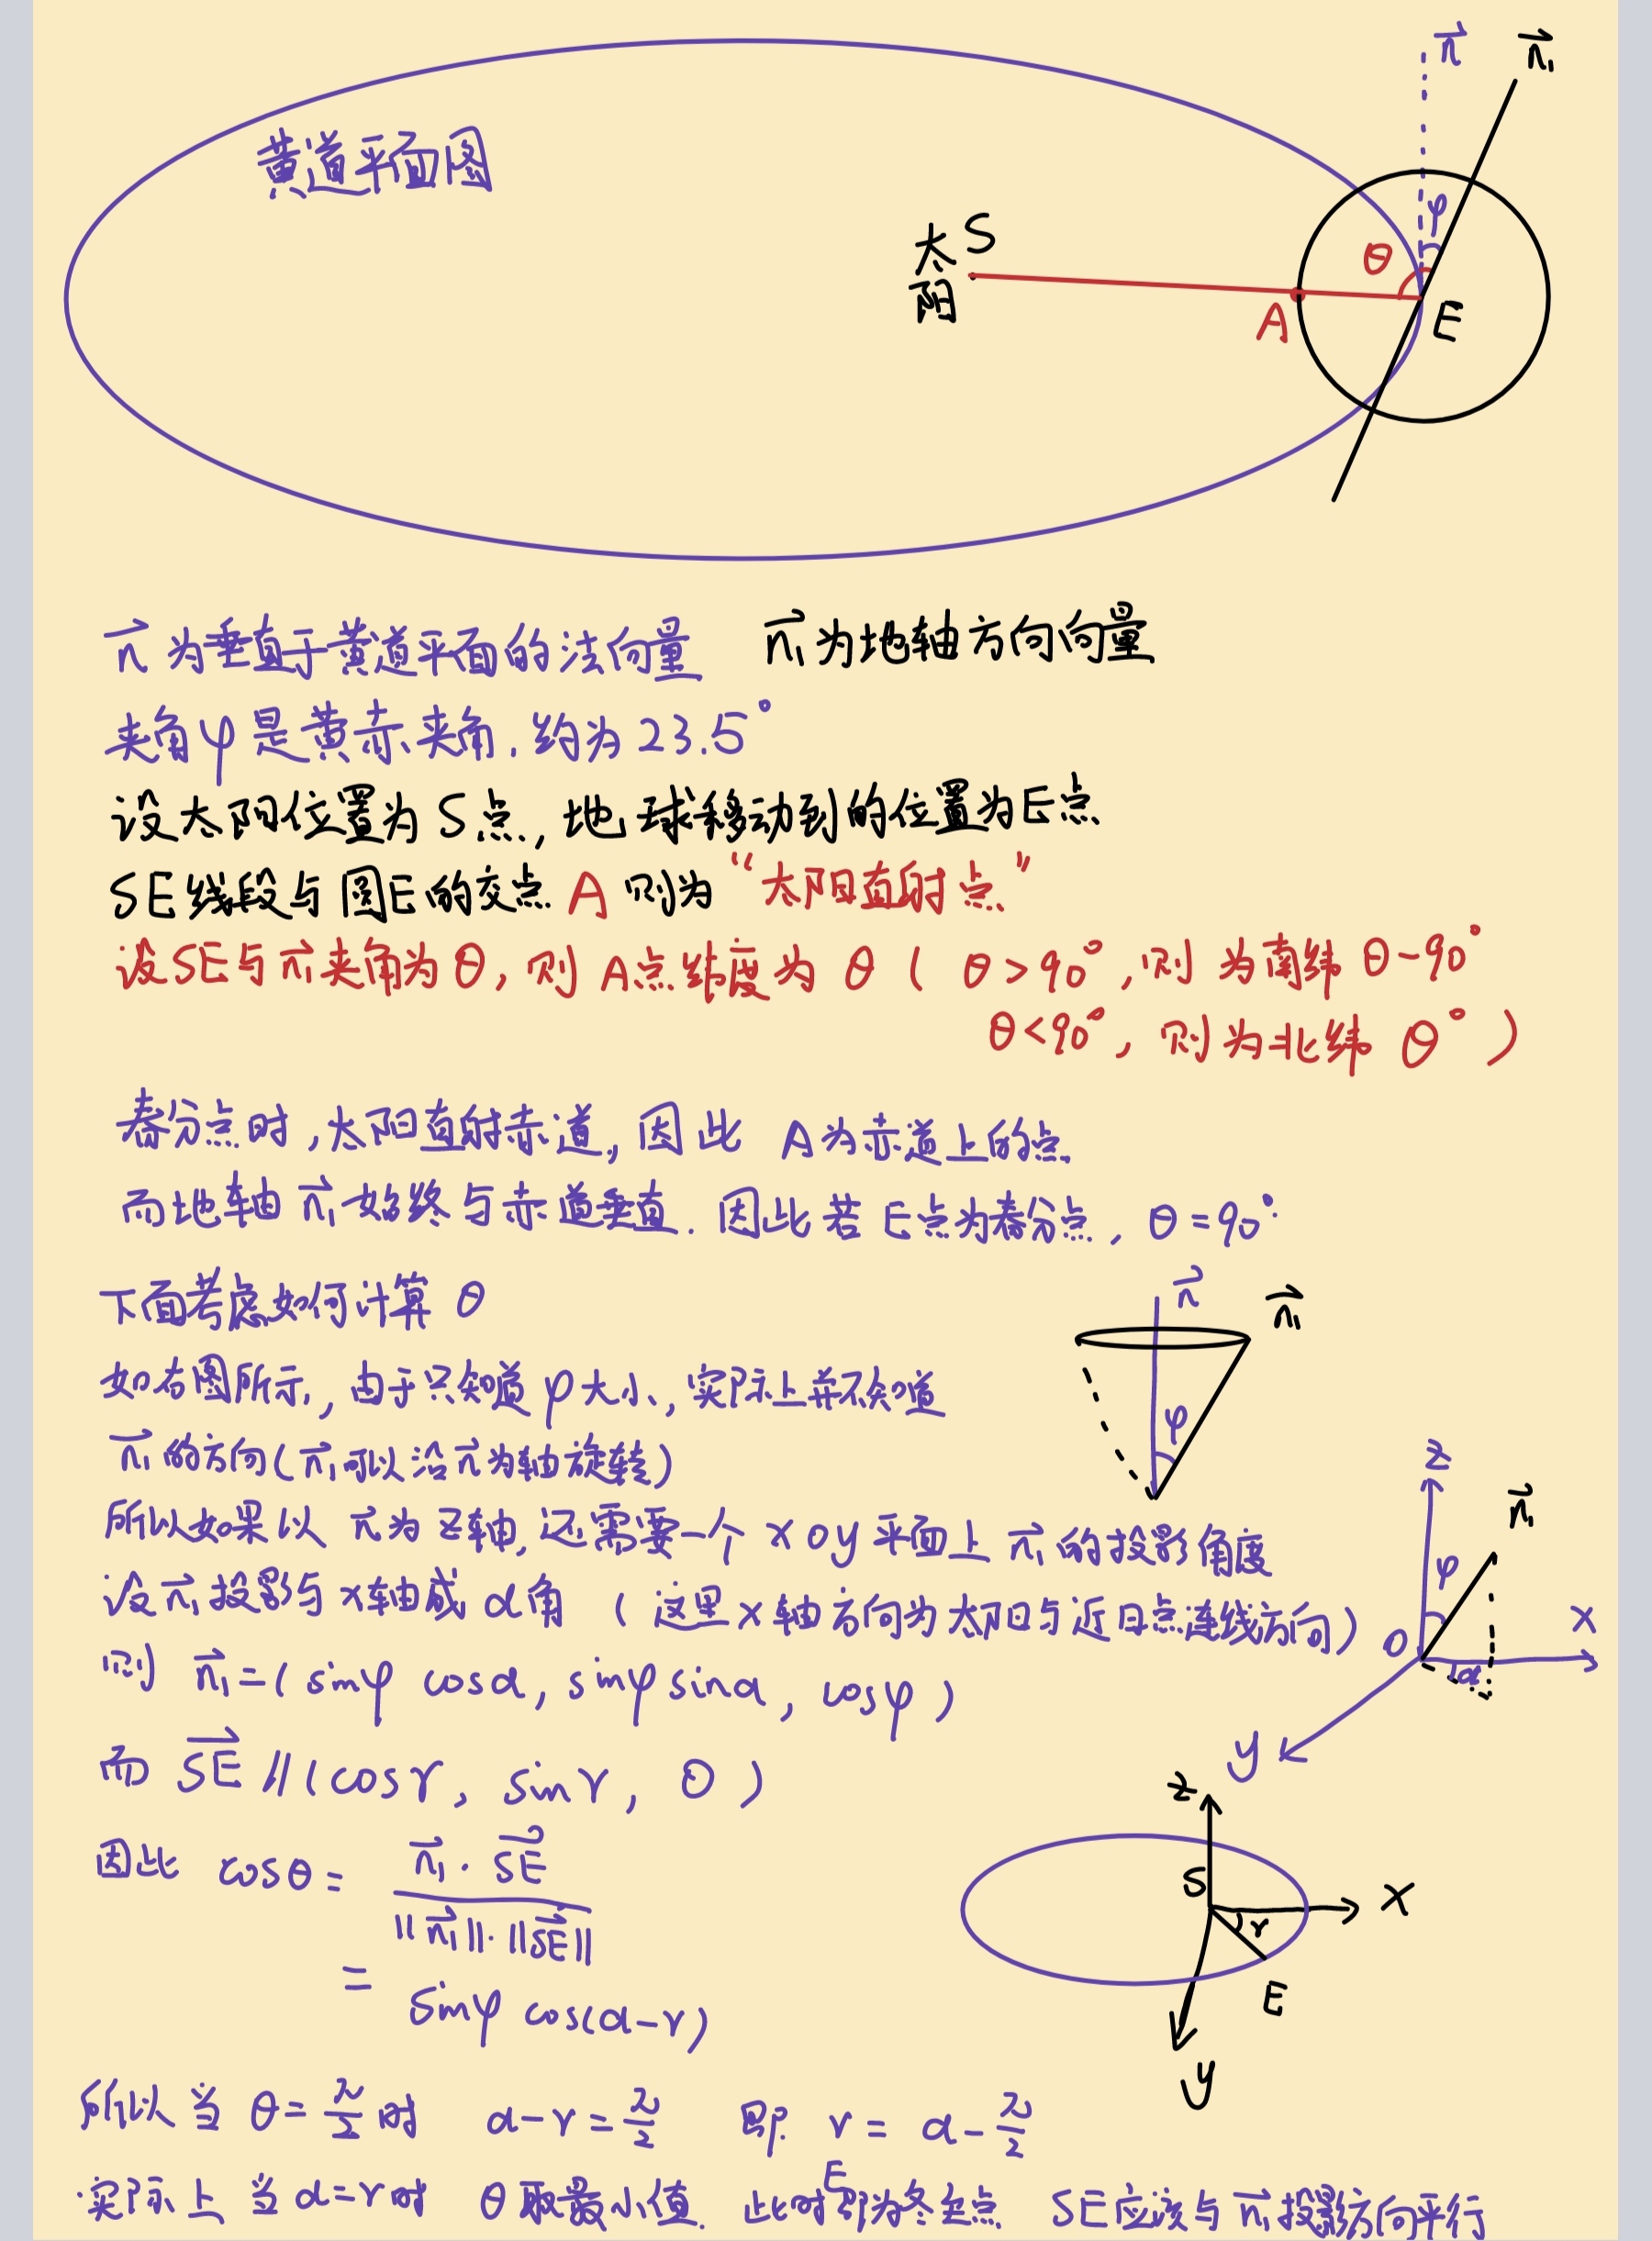 黄道平面图
n⃗
n⃗₁
φ
θ
太阳 S
A
E
n⃗ 为垂直于黄道平面的法向量 n⃗₁为地轴方向向量
夹角φ是黄赤夹角, 约为 23.5°
设太阳位置为 S点, 地球移动到的位置为E点
SE线段与圆E的交点 A 则为 “太阳直射点”
设SE与n⃗₁夹角为θ, 则 A点纬度为 θ ( θ > 90°, 则 为南纬 θ-90°
θ<90°, 则为北纬 θ° )
春分点时, 太阳直射赤道, 因此 A为赤道上的点
而地轴 n⃗₁始终与赤道垂直. 因此若 E点为春分点, θ=90°.
下面考虑如何计算 θ
n⃗
n⃗₁
φ
如右图所示, 由于只知道 φ大小, 实际上并不知道
n⃗₁的方向(n⃗₁可以沿n⃗为轴旋转)
所以如果以 n⃗为z轴, 还需要一个 xoy平面上 n⃗₁的投影角度
设n⃗₁投影与x轴成 α角 ( 这里x轴方向为太阳与近日点连线方向)
z
n⃗₁
φ
O
x
α
y
则 n⃗₁=( sinφ cosα, sinφ sinα, cosφ )
而 SE⃗ ∥ (cosγ, sinγ, 0 )
因此 cosθ = n⃗₁·SE⃗ / ‖n⃗₁‖·‖SE⃗‖
= sinφ cos(α-γ)
z
S
x
γ
E
y
所以当 θ=π/2 时 α-γ=π/2 即 γ = α-π/2
·实际上 当α=γ时 θ取最小值. 此时E即为冬至点 SE应该与n⃗₁投影方向平行